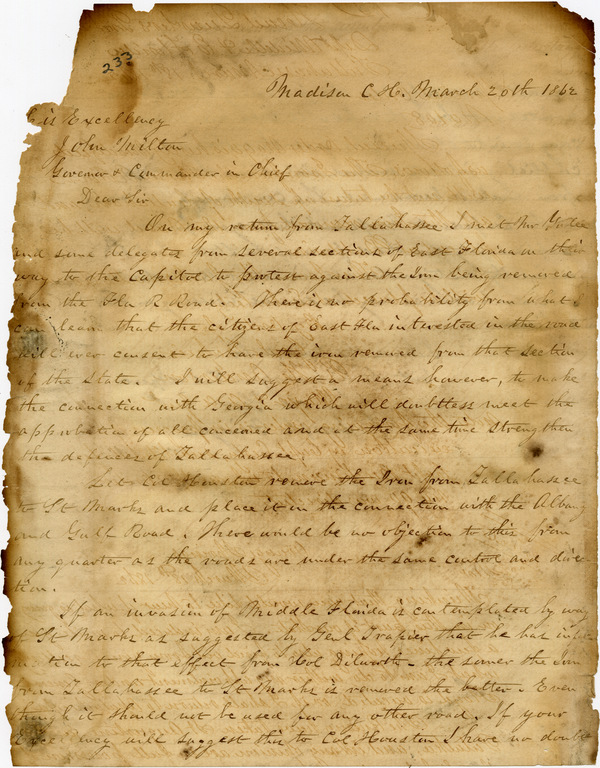 233
Madison C H. March 20th 1862
His Excellency
John Milton
Governor & Commander in Chief
Dear Sir
On my return from Tallahassee I met Mr Yulee
and some delegates from several sections of East Florida on their
way to the Capitol to protest against the Iron being removed
from the Fla R Road. There is no probability from what I
can learn that the citizens of East Fla interested in the road
will ever consent to have the iron removed from that section
of the State. I will suggest a means however, to make
the connection with Georgia which will doubtless meet the
approbation of all concerned and at the same time strengthen
the defences of Tallahassee.
Let Col Houston remove the Iron from Tallahassee
to St Marks and place it in the connection with the Albany
and Gulf Road. There would be no objection to this from
any quarter as the roads are under the same control and direc-
tion.
If an invasion of Middle Florida is contemplated by way
of St Marks as suggested by Genl Trapier that he has infor-
mation to that effect from Col Dilworth - the sooner the Iron
from Tallahassee to St Marks is removed the better. Even
though it should not be used for any other road. If your
Excellency will suggest this to Col Houston I have no doubt